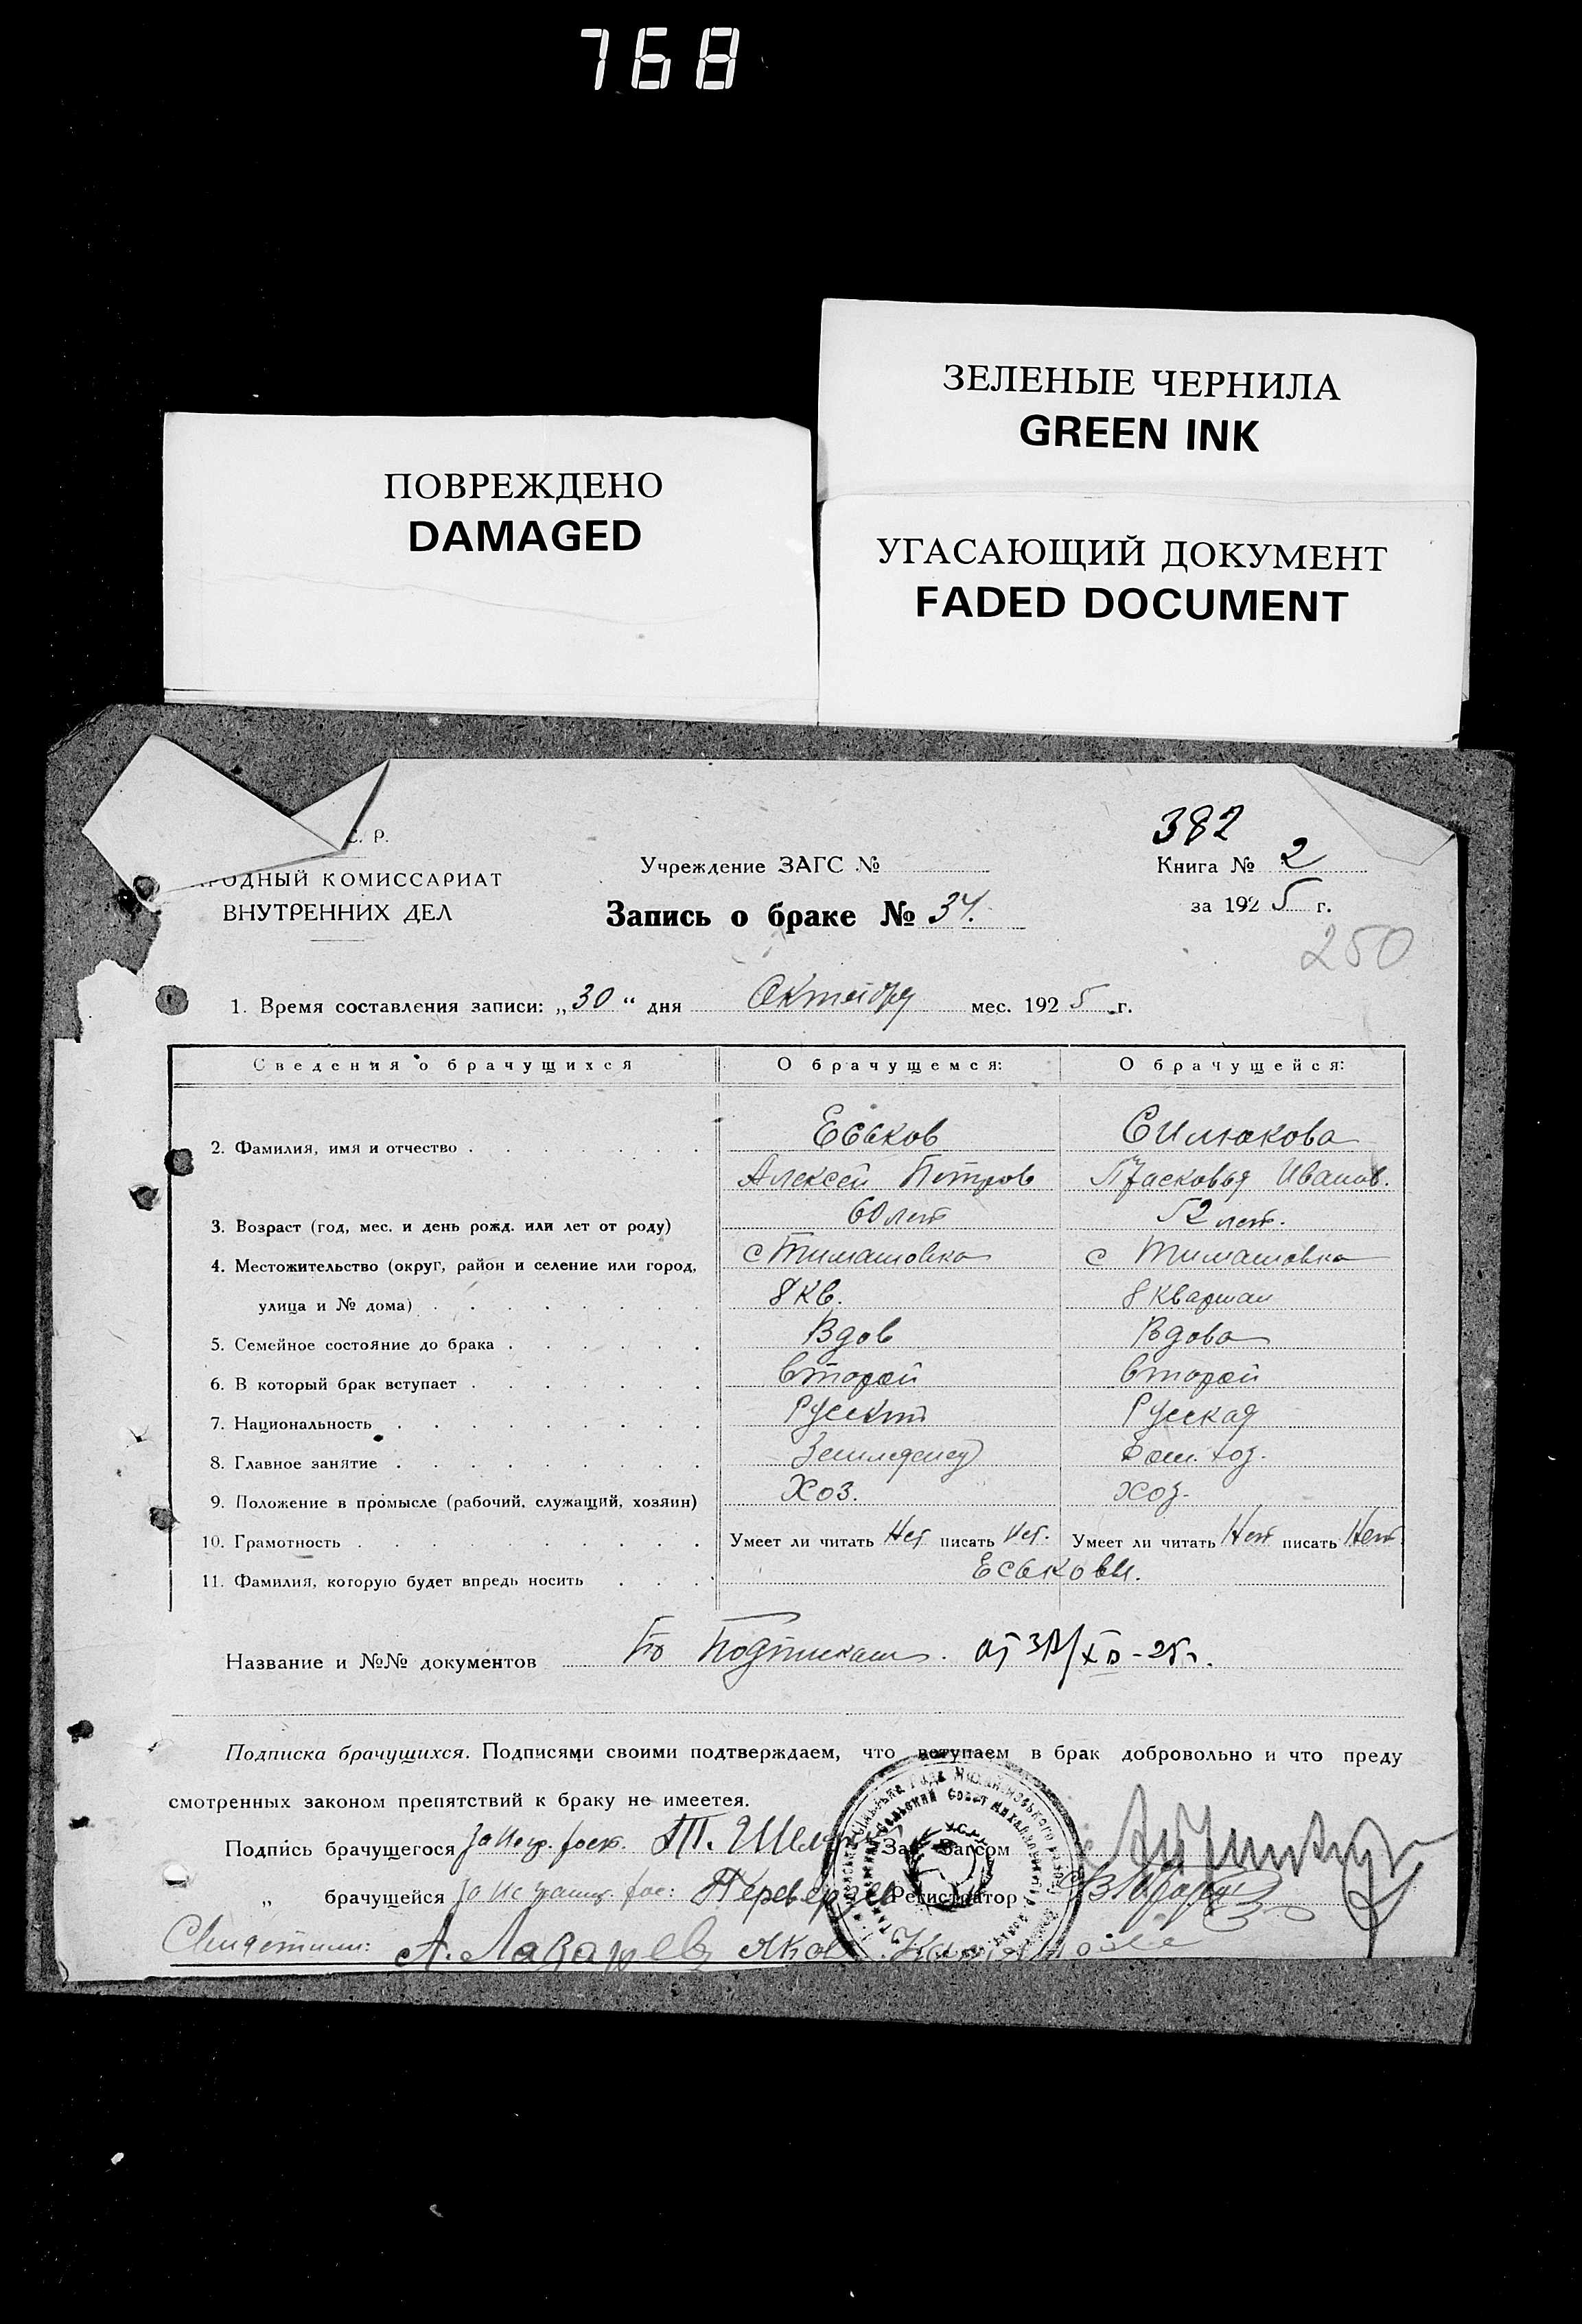 768
ЗЕЛЕНЫЕ ЧЕРНИЛА
GREEN INK
ПОВРЕЖДЕНО
DAMAGED
УГАСАЮЩИЙ ДОКУМЕНТ
FADED DOCUMENT
С. Р.
РОДНЫЙ КОМИССАРИАТ
ВНУТРЕННИХ ДЕЛ
Учреждение ЗАГС №
Запись о браке № 34.
382
Книга № 2
за 1925 г.
250
1. Время составления записи: „30“ дня Октября мес. 1925 г.
Сведения о брачущихся О брачущемся: О брачущейся:
2. Фамилия, имя и отчество Еськов Силюкова
Алексей Петров Прасковья Иванов.
3. Возраст (год, мес. и день рожд. или лет от роду) 60 лет 52 лет.
4. Местожительство (округ, район и селение или город, с Тимашовка с Тимашовка
улица и № дома) 8 кв. 8 квартал
5. Семейное состояние до брака Вдов Вдова
6. В который брак вступает Второй Второй
7. Национальность Русский Русская
8. Главное занятие Земледелец Дом. хоз.
9. Положение в промысле (рабочий, служащий, хозяин) Хоз. хоз.
10. Грамотность Умеет ли читать Нет писать Нет. Умеет ли читать Нет писать Нет
11. Фамилия, которую будет впредь носить Еськовы.
Название и №№ документов По Подпискам. от
Подписка брачущихся. Подписями своими подтверждаем, что вступаем в брак добровольно и что преду
смотренных законом препятствий к браку не имеется.
Подпись брачущегося За негр. расп. Зав. Загсом
„ брачущейся За неграмот. рас: Переверзев Регистратор
Свидетели: А. Лазарев Яков